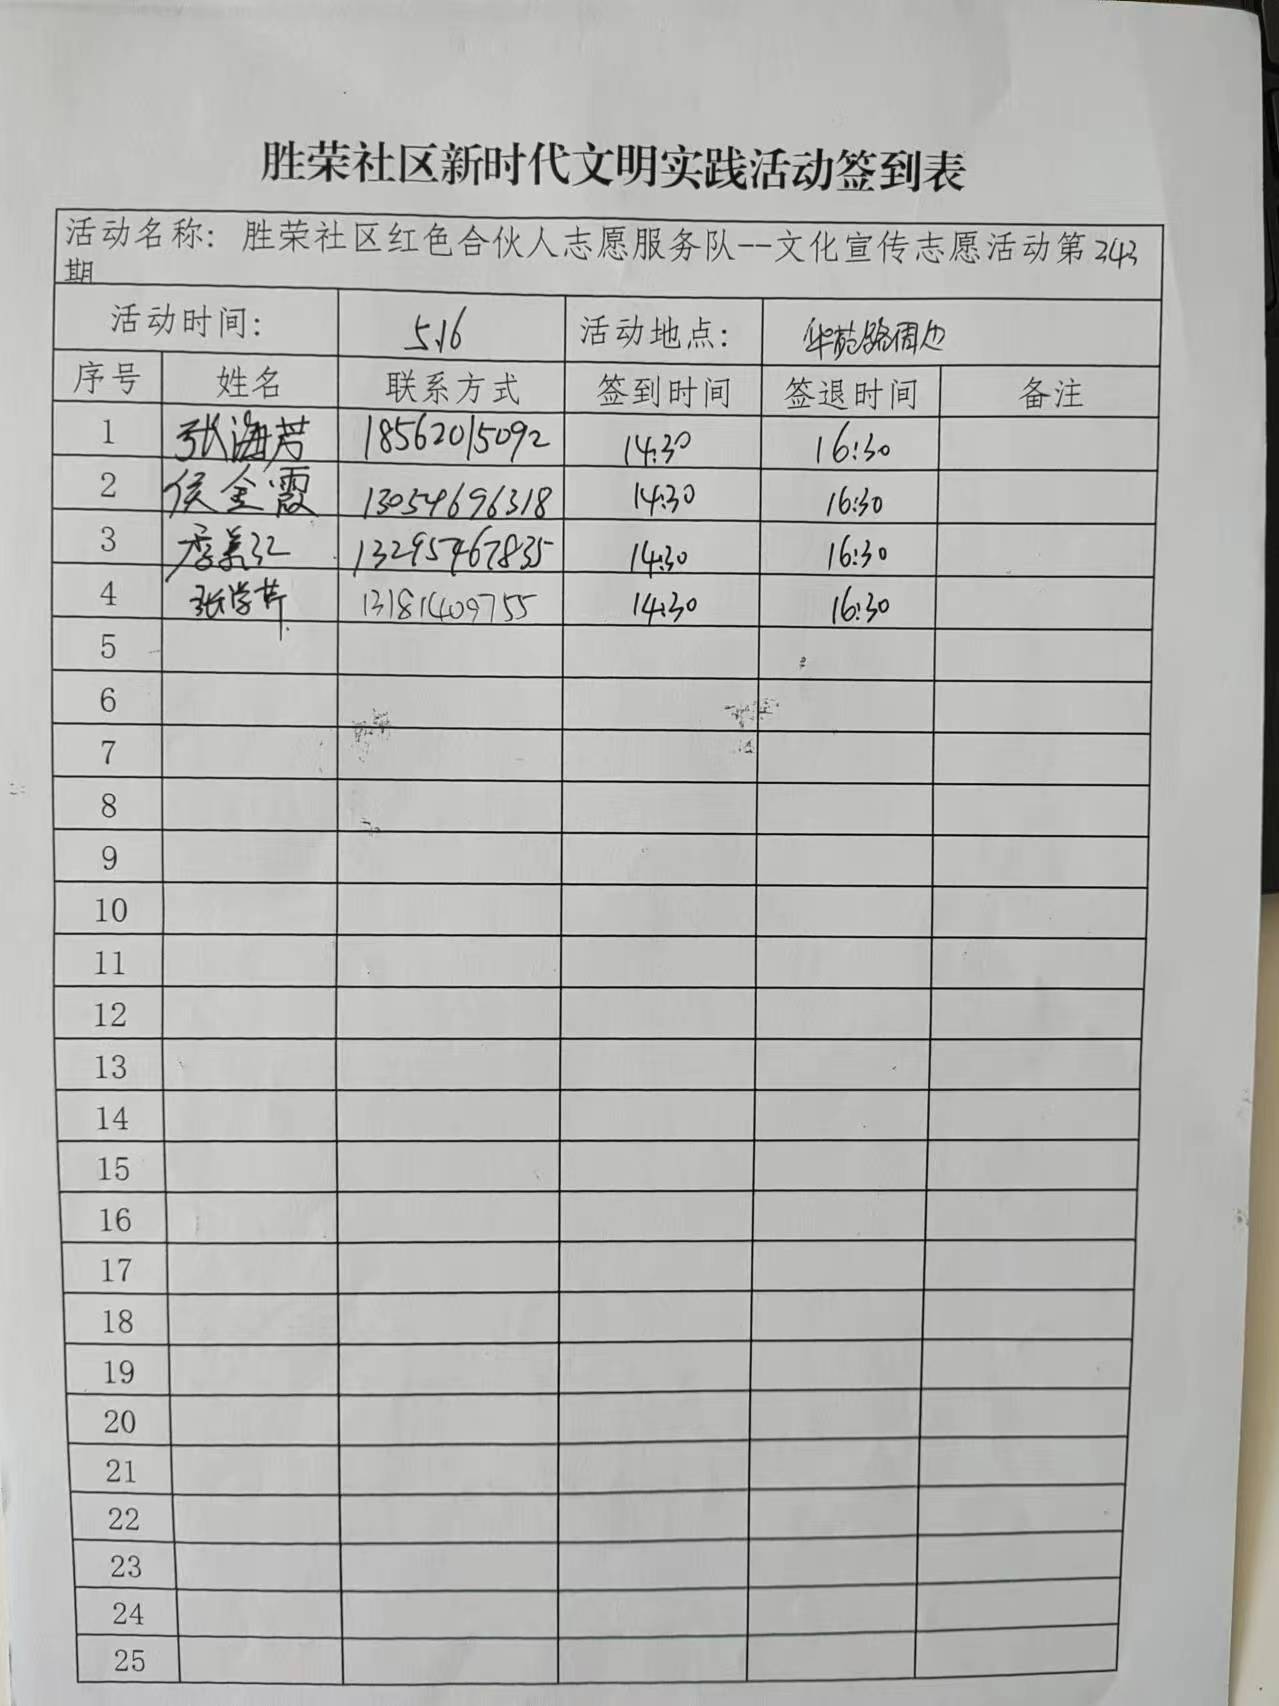 胜荣社区新时代文明实践活动签到表
活动名称：胜荣社区红色合伙人志愿服务队--文化宣传志愿活动第243
期
活动时间： 5.16 活动地点： 华苑路周边
序号 姓名 联系方式 签到时间 签退时间 备注
1 张海芳 18562015092 14:30 16:30
2 侯全霞 13054696318 14:30 16:30
3 13295467835 14:30 16:30
4 张学芹 13181409755 14:30 16:30
5
6
7
8
9
10
11
12
13
14
15
16
17
18
19
20
21
22
23
24
25